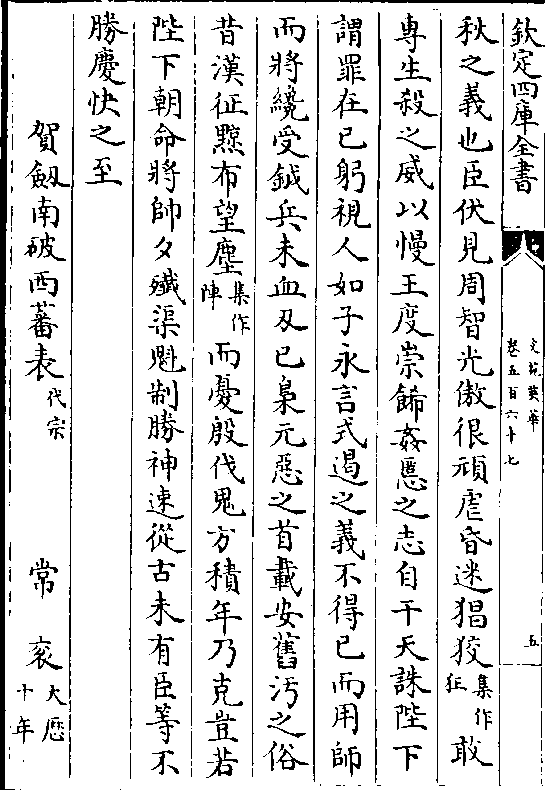 欽定四庫全書
文苑英華
卷五百六十七
五
秋之義也臣伏見周智光傲很頑虐昏迷猖狡集作狂敢
專生殺之威以慢王度崇飾姦慝之志自干天誅陛下
謂罪在已躬視人如子永言式遏之義不得已而用師
而將纔受鉞兵未血刃已梟元惡之首載安舊污之俗
昔漢征黥布望塵集作陣而憂殷伐鬼方積年乃克豈若
陛下朝命將帥夕殲渠魁制勝神速從古未有臣等不
勝慶快之至
賀劔南破西蕃表代宗 常袞大厯十年